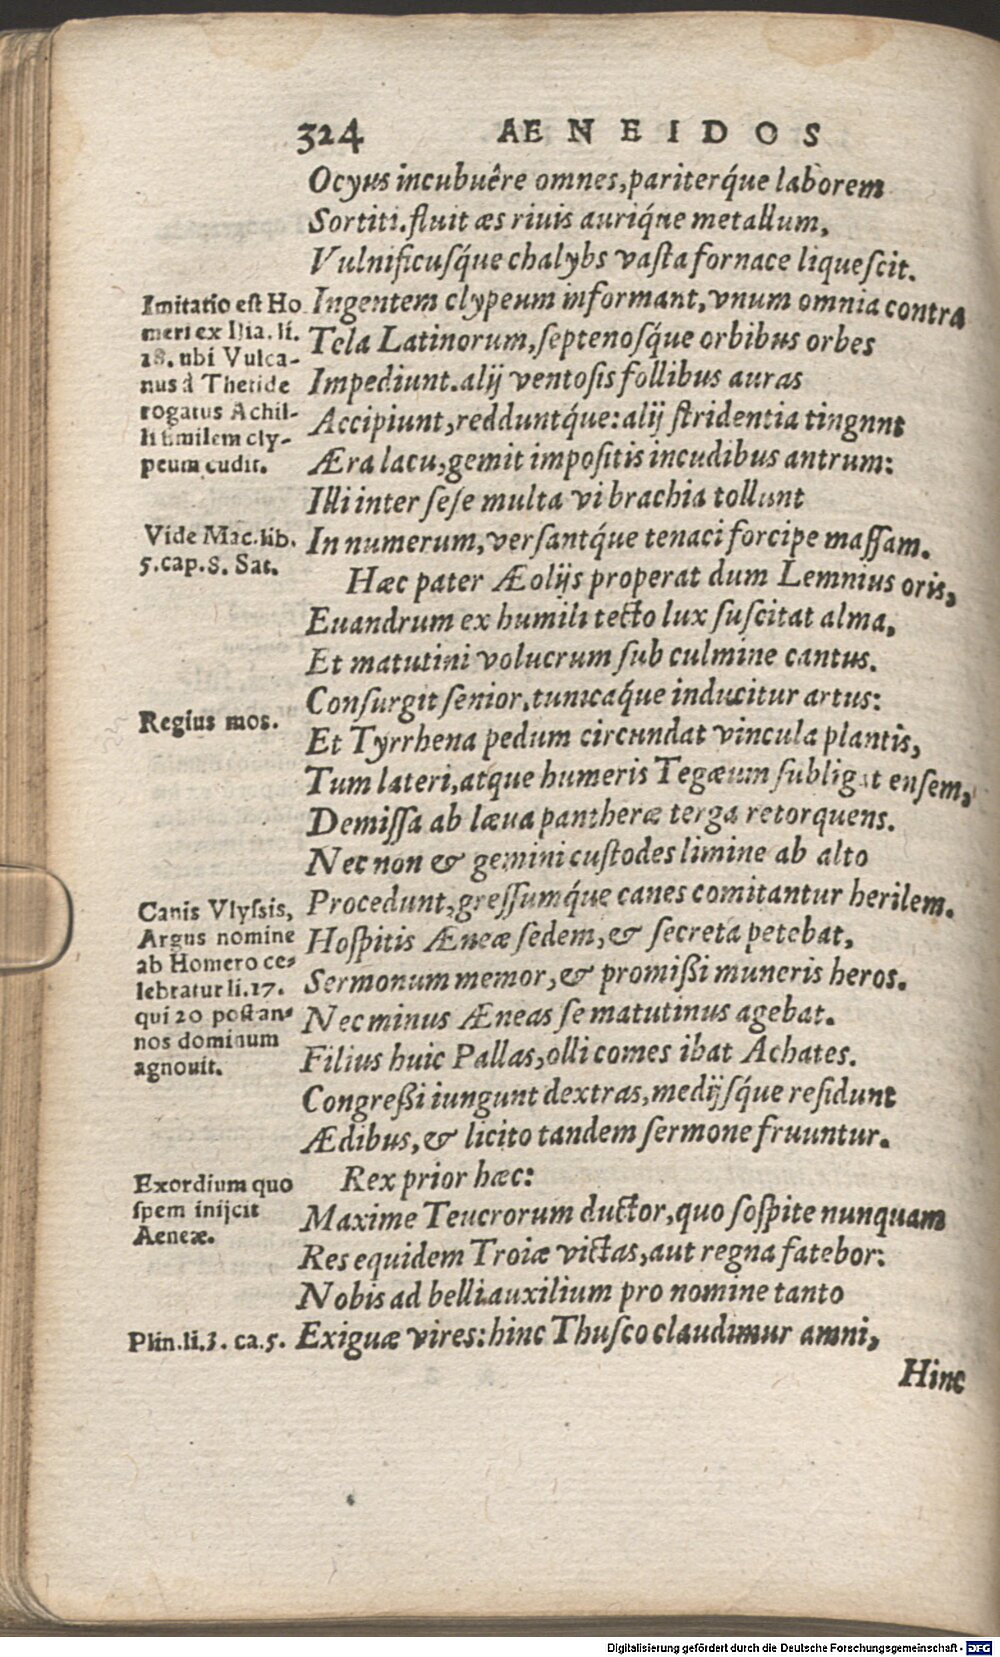 324 AENEIDOS
Ocyus incubuêre omnes, pariterq́ue laborem
Sortiti. fluit æs riuis auriq́ue metallum,
Vulnificusq́ue chalybs vasta fornace liquescit.
Imitatio est Ho
meri ex Ilia. li.
18. ubi Vulca-
nus à Thetide
rogatus Achil-
li similem cly-
peum cudit.
Ingentem clypeum informant, vnum omnia contra
Tela Latinorum, septenosq́ue orbibus orbes
Impediunt. alij ventosis follibus auras
Accipiunt, redduntq́ue: alij stridentia tingnnt
Æra lacu, gemit impositis incudibus antrum:
Illi inter sese multa vi brachia tollunt
Vide Mac. lib.
5. cap. 8. Sat.
In numerum, versantq́ue tenaci forcipe massam.
Hæc pater Æolijs properat dum Lemnius oris,
Euandrum ex humili tecto lux suscitat alma,
Et matutini volucrum sub culmine cantus.
Consurgit senior, tunicaq́ue inducitur artus:
Regius mos.
Et Tyrrhena pedum circundat vincula plantis,
Tum lateri, atque humeris Tegæum subligat ensem,
Demissa ab læua pantheræ terga retorquens.
Nec non & gemini custodes limine ab alto
Canis Vlyssis,
Argus nomine
ab Homero ce-
lebratur li. 17.
qui 20 post an-
nos dominum
agnouit.
Procedunt, gressumq́ue canes comitantur herilem.
Hospitis Æneæ sedem, & secreta petebat,
Sermonum memor, & promißi muneris heros.
Nec minus Æneas se matutinus agebat.
Filius huic Pallas, olli comes ibat Achates.
Congreßi iungunt dextras, medijsq́ue residunt
Ædibus, & licito tandem sermone fruuntur.
Exordium quo
spem inijcit
Aeneæ.
Rex prior hæc:
Maxime Teucrorum ductor, quo sospite nunquam
Res equidem Troiæ victas, aut regna fatebor:
Nobis ad belli auxilium pro nomine tanto
Plin. li. 3. ca. 5.
Exiguæ vires: hinc Thusco claudimur amni,
Hinc
Digitalisierung gefördert durch die Deutsche Forschungsgemeinschaft - DFG